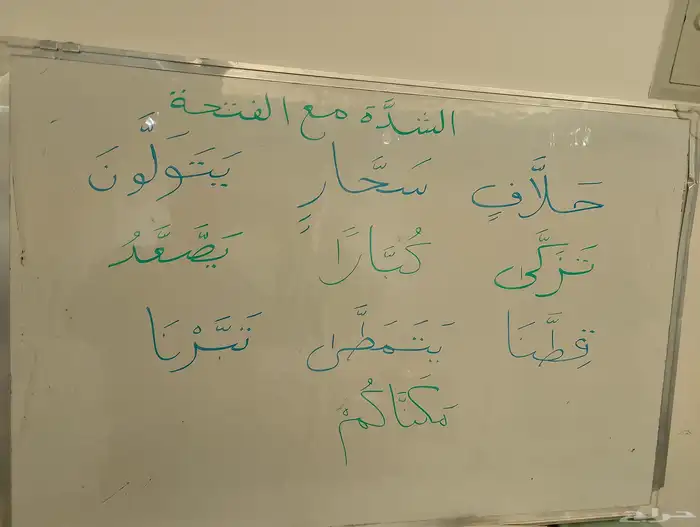 الشدَّة مع الفتحة
حَلَّافٍ سَحَّارٍ يَتَوَلَّوْنَ
تَزَكَّى كُبَّارًا يَصَّعَّدُ
قِطَّنَا يَتَمَطَّى تَبَّرْنَا
مَكَنَّاكُمْ
حراج